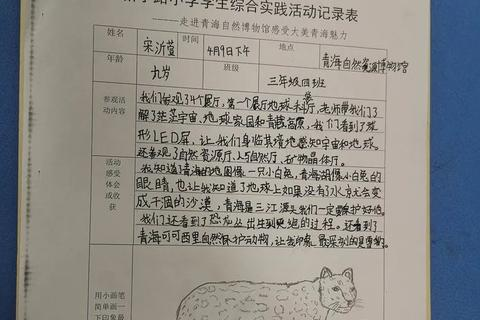 小学学生综合实践活动记录表
——走进青海自然博物馆感受大美青海魅力
姓名 宋沂萱 时间 4月9日下午 地点 青海自然资源博物馆
年龄 九岁 班级 三年级四班
参观活动内容
我们参观了4个展厅，第一个展厅地球科学厅，老师带我们了
解了茫茫宇宙、地球家园和青藏高原，我们看到了球
形LED屏，让我们身临其境地感知宇宙和地球。
还参观了自然资源厅、上5自然厅、矿物晶体厅。
活动感受体会或收获
我知道了青海的地图像一只小白兔，青海湖像小白兔的
眼睛，也让我知道了地球上如果没有了水立就会变
成干涸的沙道，青海是三江源头我们一定要保护好她。
我们还看到了恐龙从出生到的过程。还看到了
青海可可西里自然保护动物，让我印象最深刻的是雪豹。
用小画笔
简单画一
下印象最